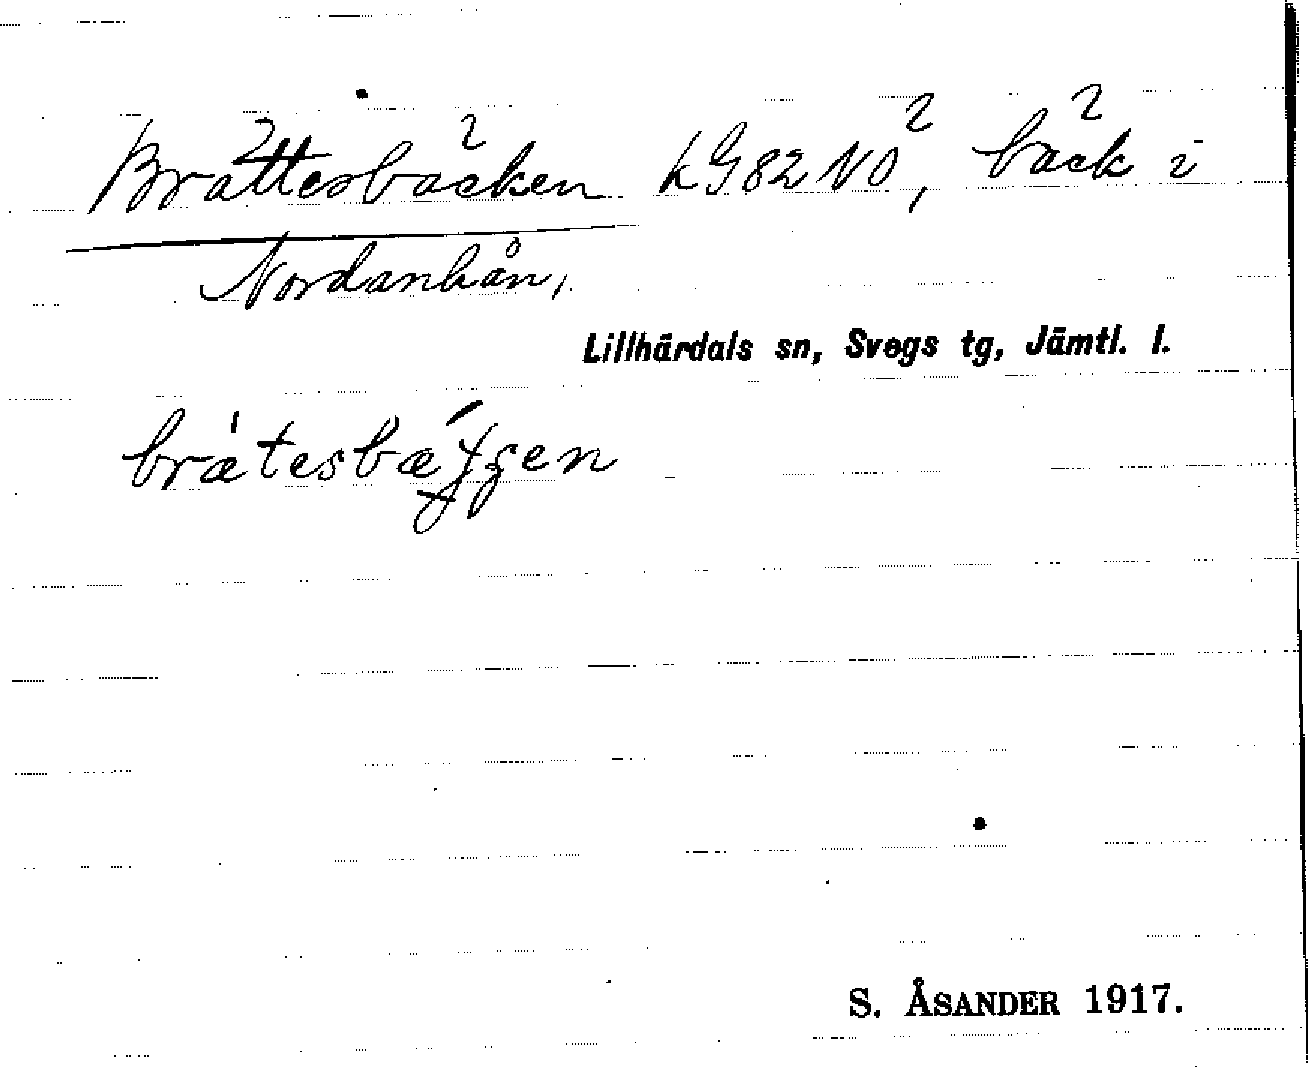 Brättesbäcken LG82NO², bäck i
Nordanhån,
Lillhärdals sn, Svegs tg, Jämtl. l.
S. ÅSANDER 1917.